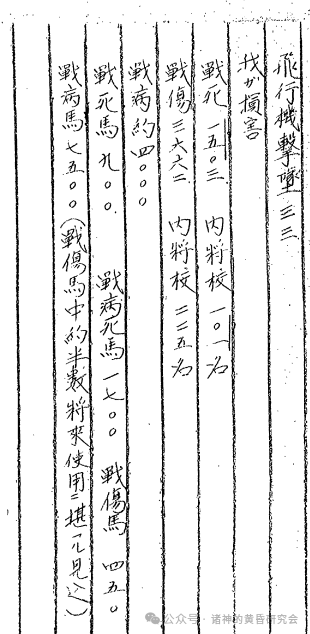 飛行機撃墜 三三
我カ損害
戦死 一五〇三 内将校 一〇一名
戦傷 三六六三 内将校 二二五名
戦病約 四〇〇〇
戦死馬 九〇〇 戦病死馬 一七〇〇 戦傷馬 四五〇
戦病馬 七五〇〇(戦傷馬中約半数将来使用ニ堪ヘル見込)
公众号 · 诸神的黄昏研究会